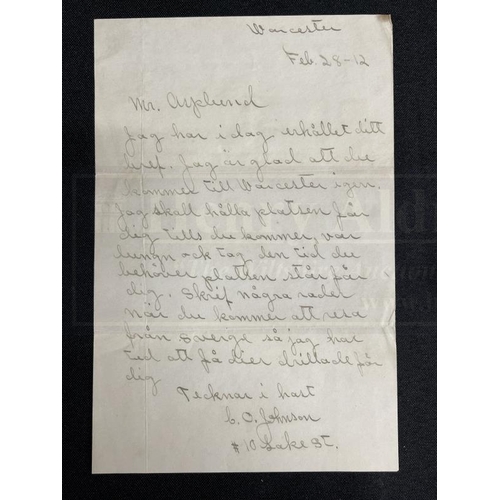 Worcester
Feb. 28-12
Mr. Asplund
Jag har i dag erhållet ditt
bref. Jag är glad att du
kommer till Worcester igen.
Jag skall hålla platsen för
dig tills du kommer, var
lungn ock tag den tid du
behöver platsen står för
dig. Skrif några rader
när du kommer att resa
från Sverge så jag har
tid att få dier drillade för
dig
Tecknar i hast
C. O. Johnson
#10 Lake St.